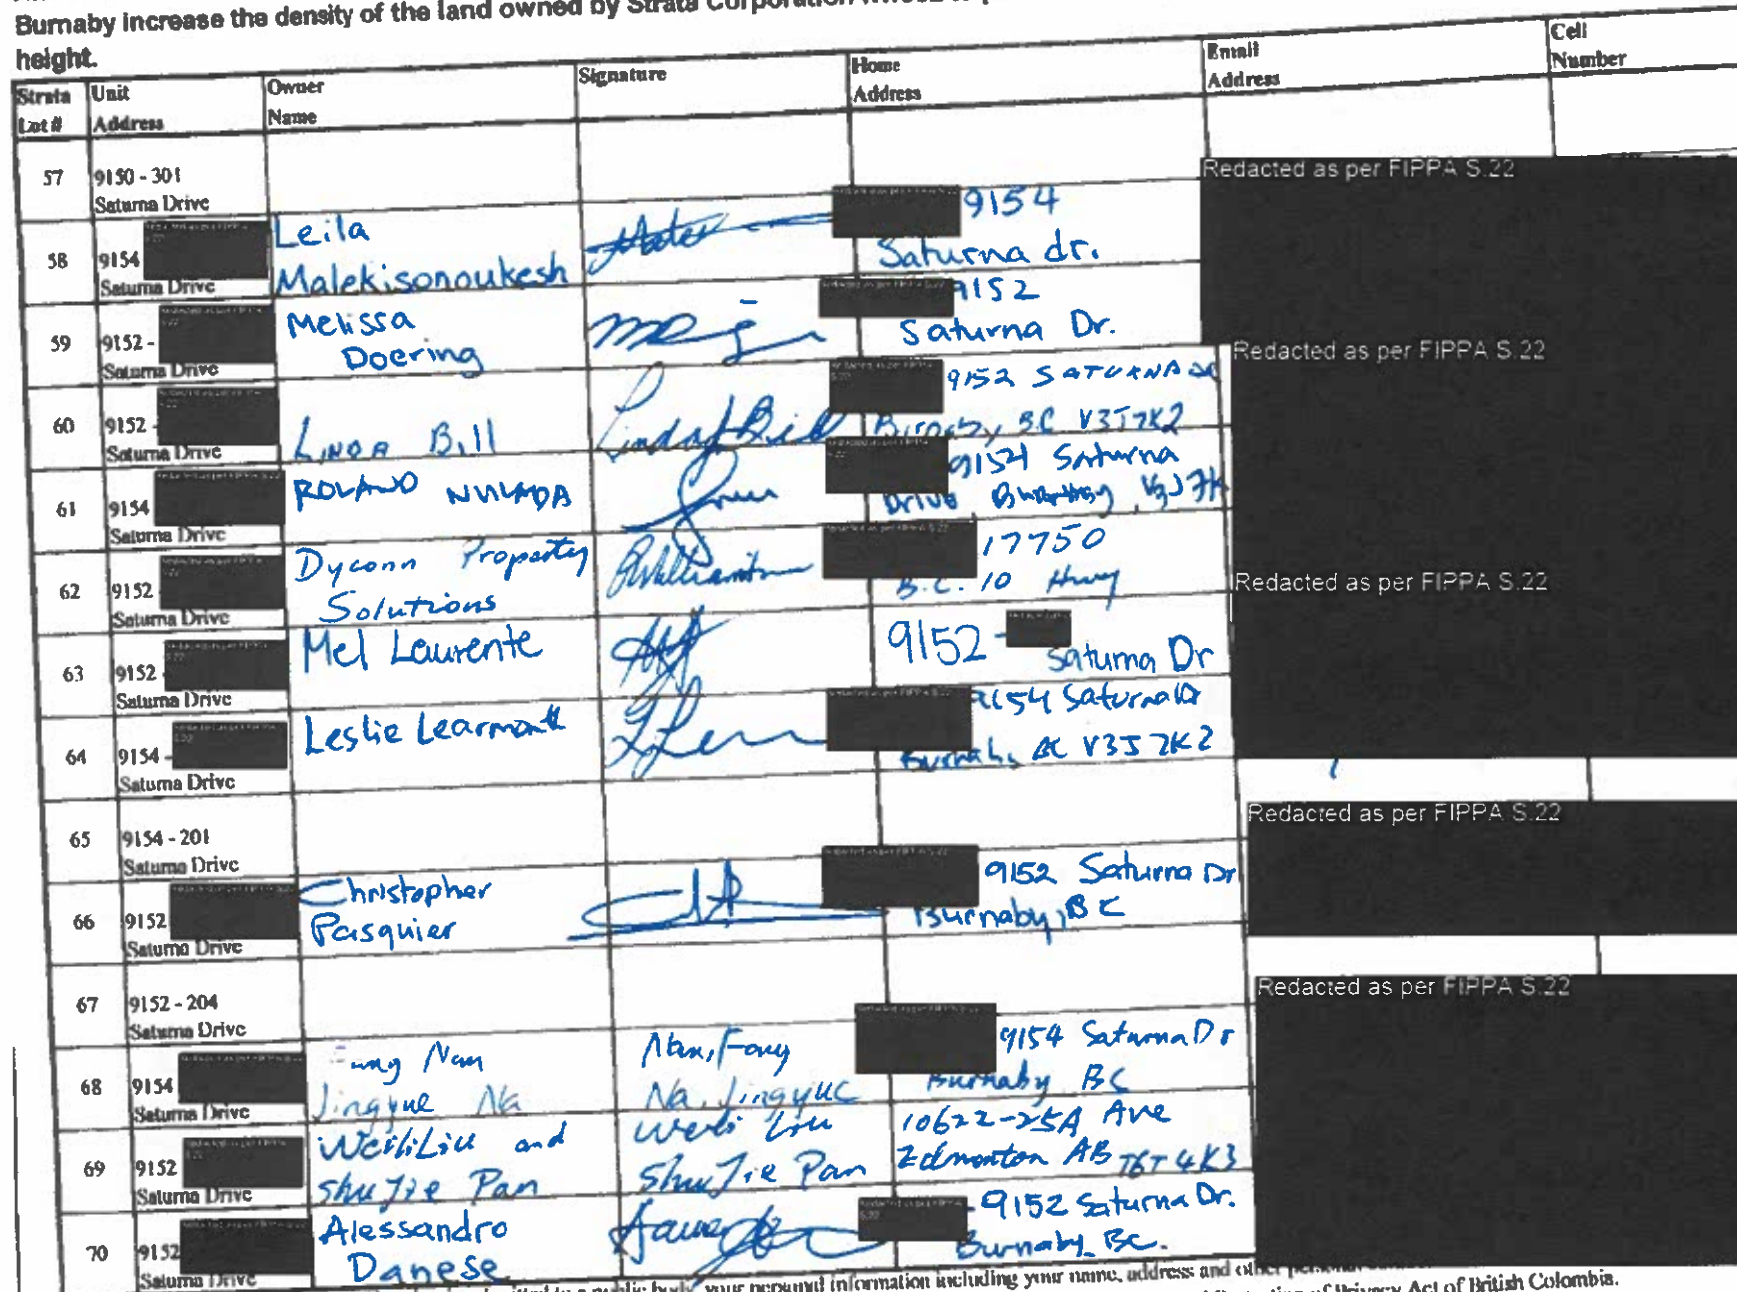 Burnaby increase the density of the land owned by Strata Corporation
height.
Strata Lot # Unit Address Owner Name Signature Home Address Email Address Cell Number
57 9150 - 301 Saturna Drive
Redacted as per FIPPA S.22
58 9154 Saturna Drive Leila Malekisonoukesh 9154 Saturna dr.
59 9152 - Saturna Drive Melissa Doering 9152 Saturna Dr.
Redacted as per FIPPA S.22
60 9152 - Saturna Drive Linda Bill Linda Bill 9152 SATURNA DR Burnaby BC V3J7K2
61 9154 Saturna Drive ROLAND 9154 Saturna Drive Burnaby, V3J 7K
62 9152 Saturna Drive Dyconn Property Solutions 17750 B.C. 10 Hwy
Redacted as per FIPPA S.22
63 9152 Saturna Drive Mel Laurente 9152 - Saturna Dr
64 9154 - Saturna Drive Leslie Learmonth 9154 Saturna Dr Burnaby BC V3J 7K2
65 9154 - 201 Saturna Drive
Redacted as per FIPPA S.22
66 9152 Saturna Drive Christopher Pasquier 9152 Saturna Dr Burnaby, BC
67 9152 - 204 Saturna Drive
Redacted as per FIPPA S.22
68 9154 Saturna Drive Nan Jingyue Na Nan, Fang Na, Jingyue 9154 Saturna Dr Burnaby BC
69 9152 Saturna Drive Weili Liu and Shu Jie Pan Weili Liu Shu Jie Pan 10622-25A Ave Edmonton AB T6T 4K3
70 9152 Saturna Drive Alessandro Danese 9152 Saturna Dr. Burnaby, BC.
to a public body, your personal information including your name, address and other personal
of Privacy Act of British Colombia.